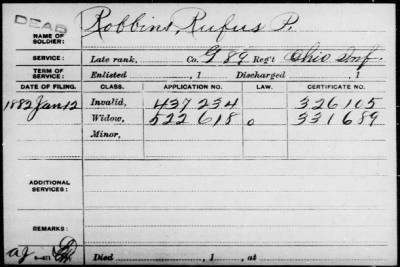 DEAD
NAME OF SOLDIER: Robbins, Rufus P.
SERVICE: Late rank, Co. G 89 Reg't Ohio Inf.
TERM OF SERVICE: Enlisted , 1 Discharged , 1
DATE OF FILING. CLASS. APPLICATION NO. LAW. CERTIFICATE NO.
1882 Jan 12 Invalid, 437 234 326 105
Widow, 522 618 0 331 689
Minor,
ADDITIONAL SERVICES:
REMARKS:
Died , 1 , at